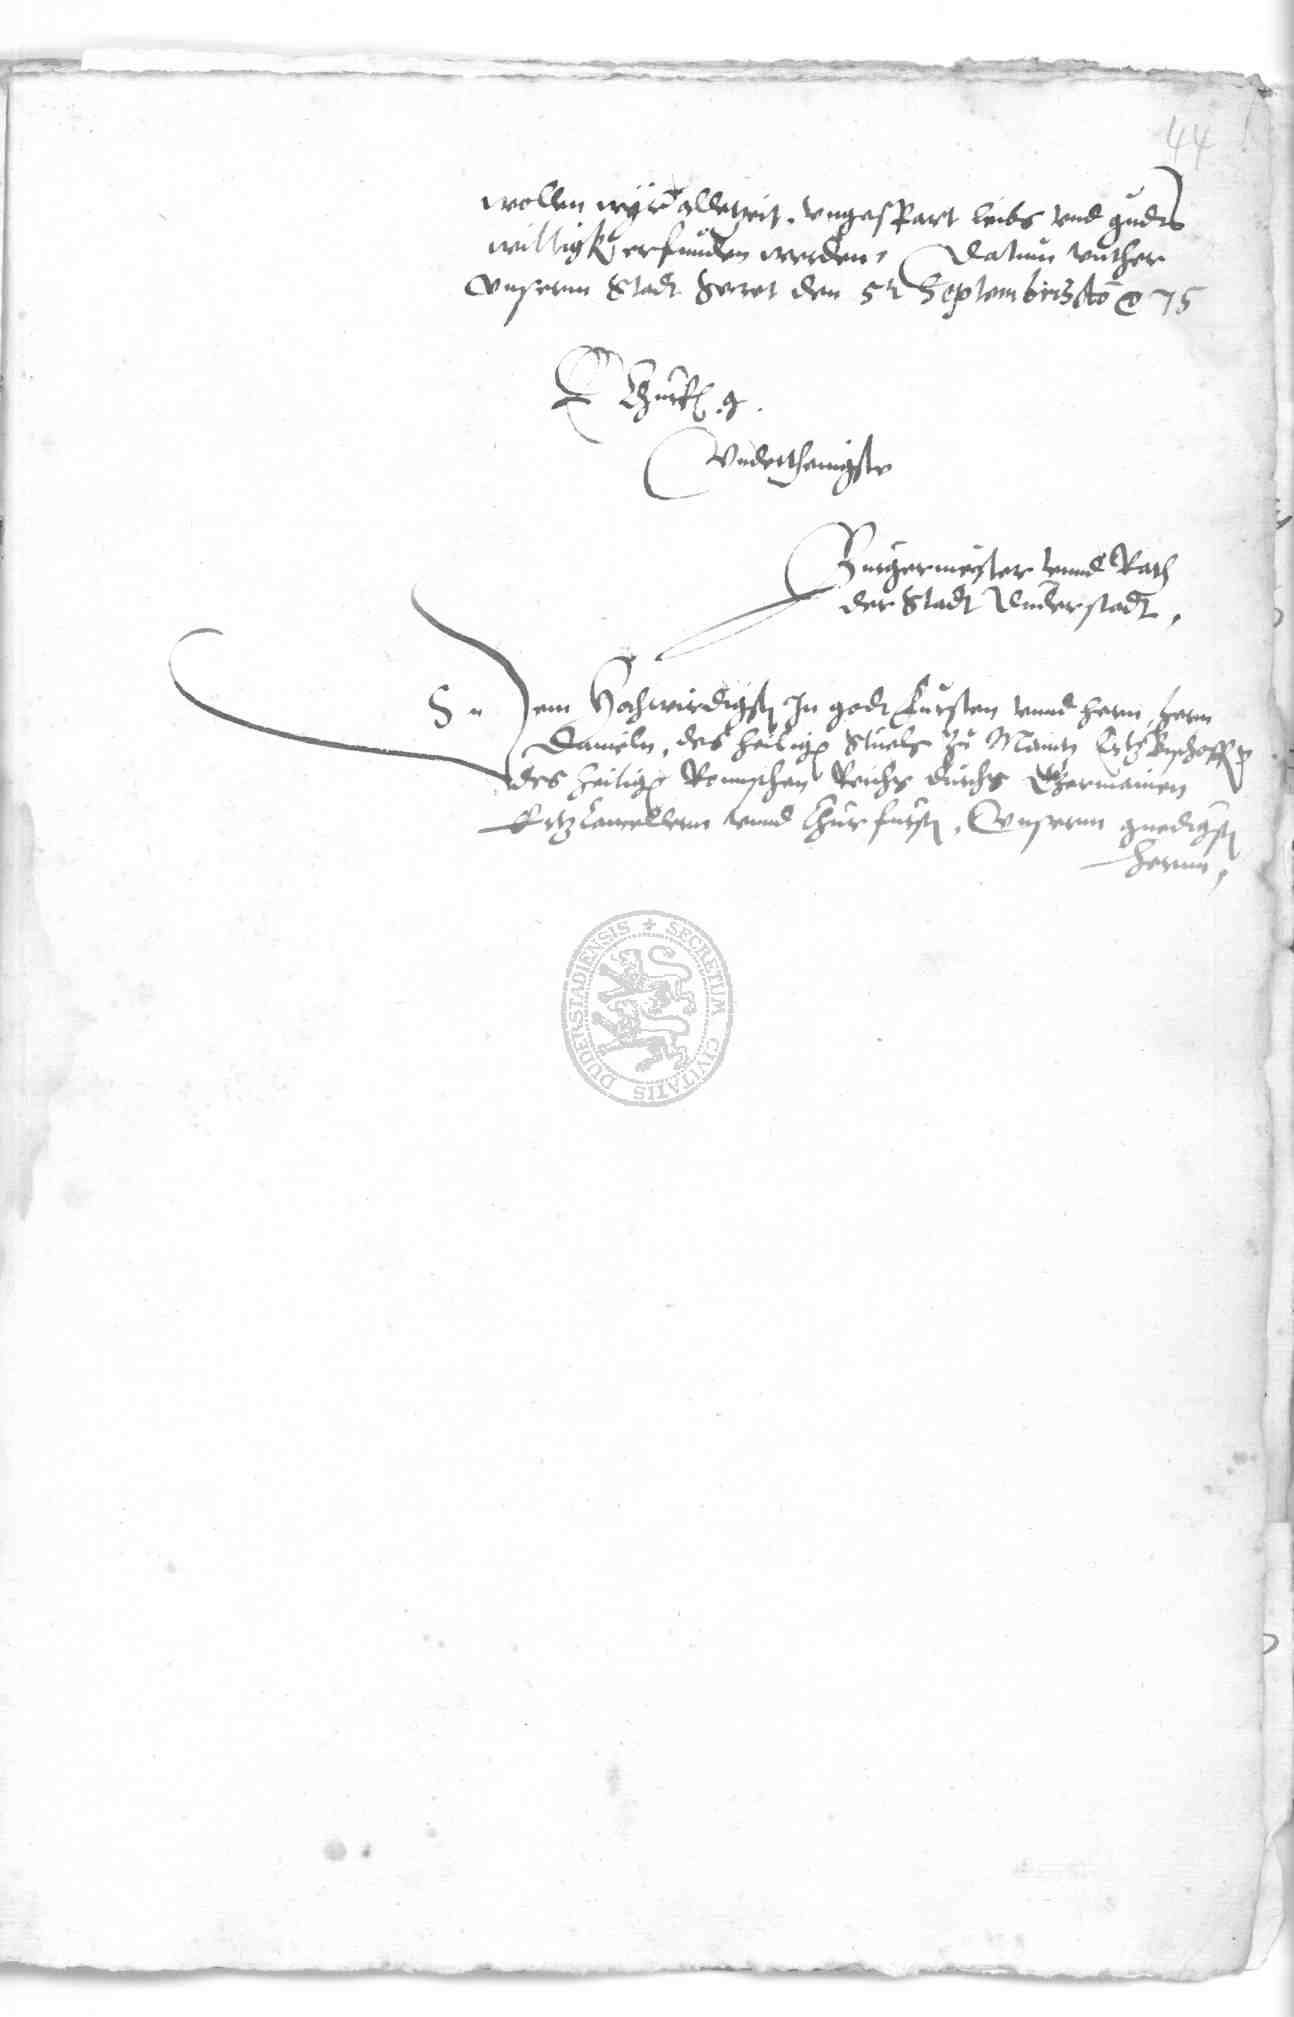 44
wollen wyr alletzeit, vngespart leibs vnd gudts
willigk erfunden werden, Datum vnther
Vnserm Stadt Secret den 5t Septembris Ao 75
E Churf. g.
Vnderthenigste
Burgermeyster vnnd Rath
der Stadt Duderstadt,
Dem Hochwirdigst In godt Fursten vnnd hern, hern
Danieln, des heilig Stuels zu Maintz Ertzbischoff
des heilig Romischen Reichs durch Germanien
Ertzcancellern vnnd Churfurst, Vnserm gnedigst
hernn,
SECRETUM CIVITATIS DUDERSTADIENSIS